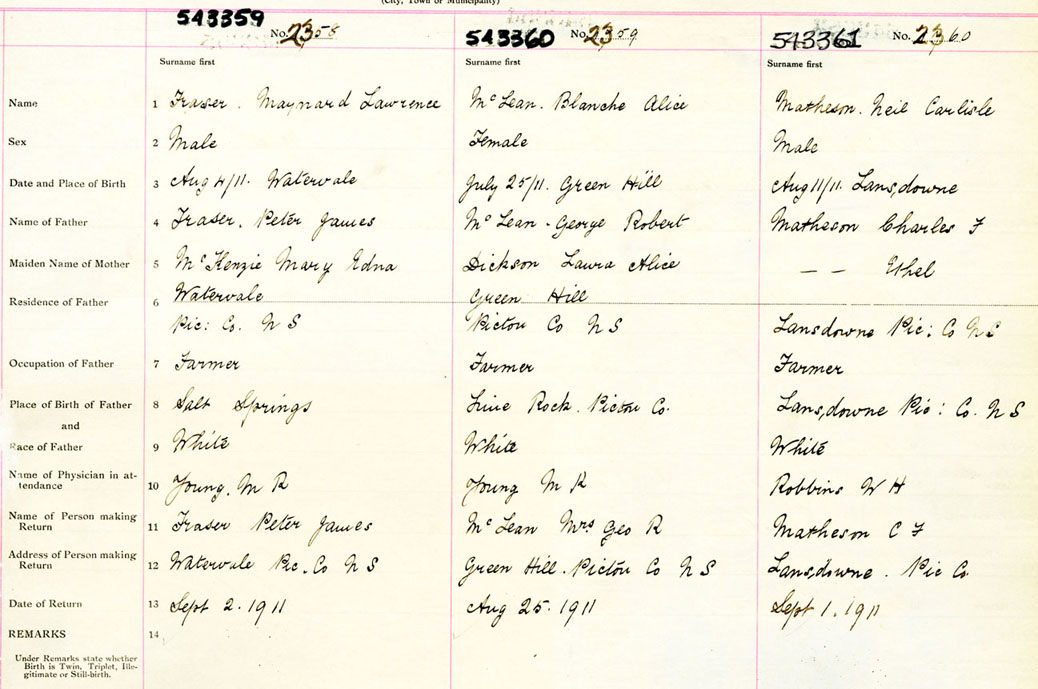 (City, Town or Municipality)
543359 No. 2358
543360 No. 2359
543361 No. 2360
Surname first Surname first Surname first
Name 1 Fraser. Maynard Lawrence McLean. Blanche Alice Matheson. Neil Carlisle
Sex 2 Male Female Male
Date and Place of Birth 3 Aug 4/11. Watervale July 25/11. Green Hill Aug 11/11. Lansdowne
Name of Father 4 Fraser. Peter James McLean - George Robert Matheson Charles F
Maiden Name of Mother 5 McKenzie Mary Edna Dickson Laura Alice — — Ethel
Residence of Father 6 Watervale Green Hill
Pic: Co. N S Pictou Co N S Lansdowne Pic: Co N S
Occupation of Father 7 Farmer Farmer Farmer
Place of Birth of Father 8 Salt Springs Lime Rock. Pictou Co. Lansdowne Pic: Co. N S
and
Race of Father 9 White White White
Name of Physician in at-
tendance 10 Young. M R Young M R Robbins W H
Name of Person making
Return 11 Fraser Peter James McLean Mrs Geo R Matheson C F
Address of Person making
Return 12 Watervale Pic. Co N S Green Hill. Pictou Co N S Lansdowne. Pic Co.
Date of Return 13 Sept 2. 1911 Aug 25. 1911 Sept 1. 1911
REMARKS 14
Under Remarks state whether
Birth is Twin, Triplet, Ille-
gitimate or Still-birth.